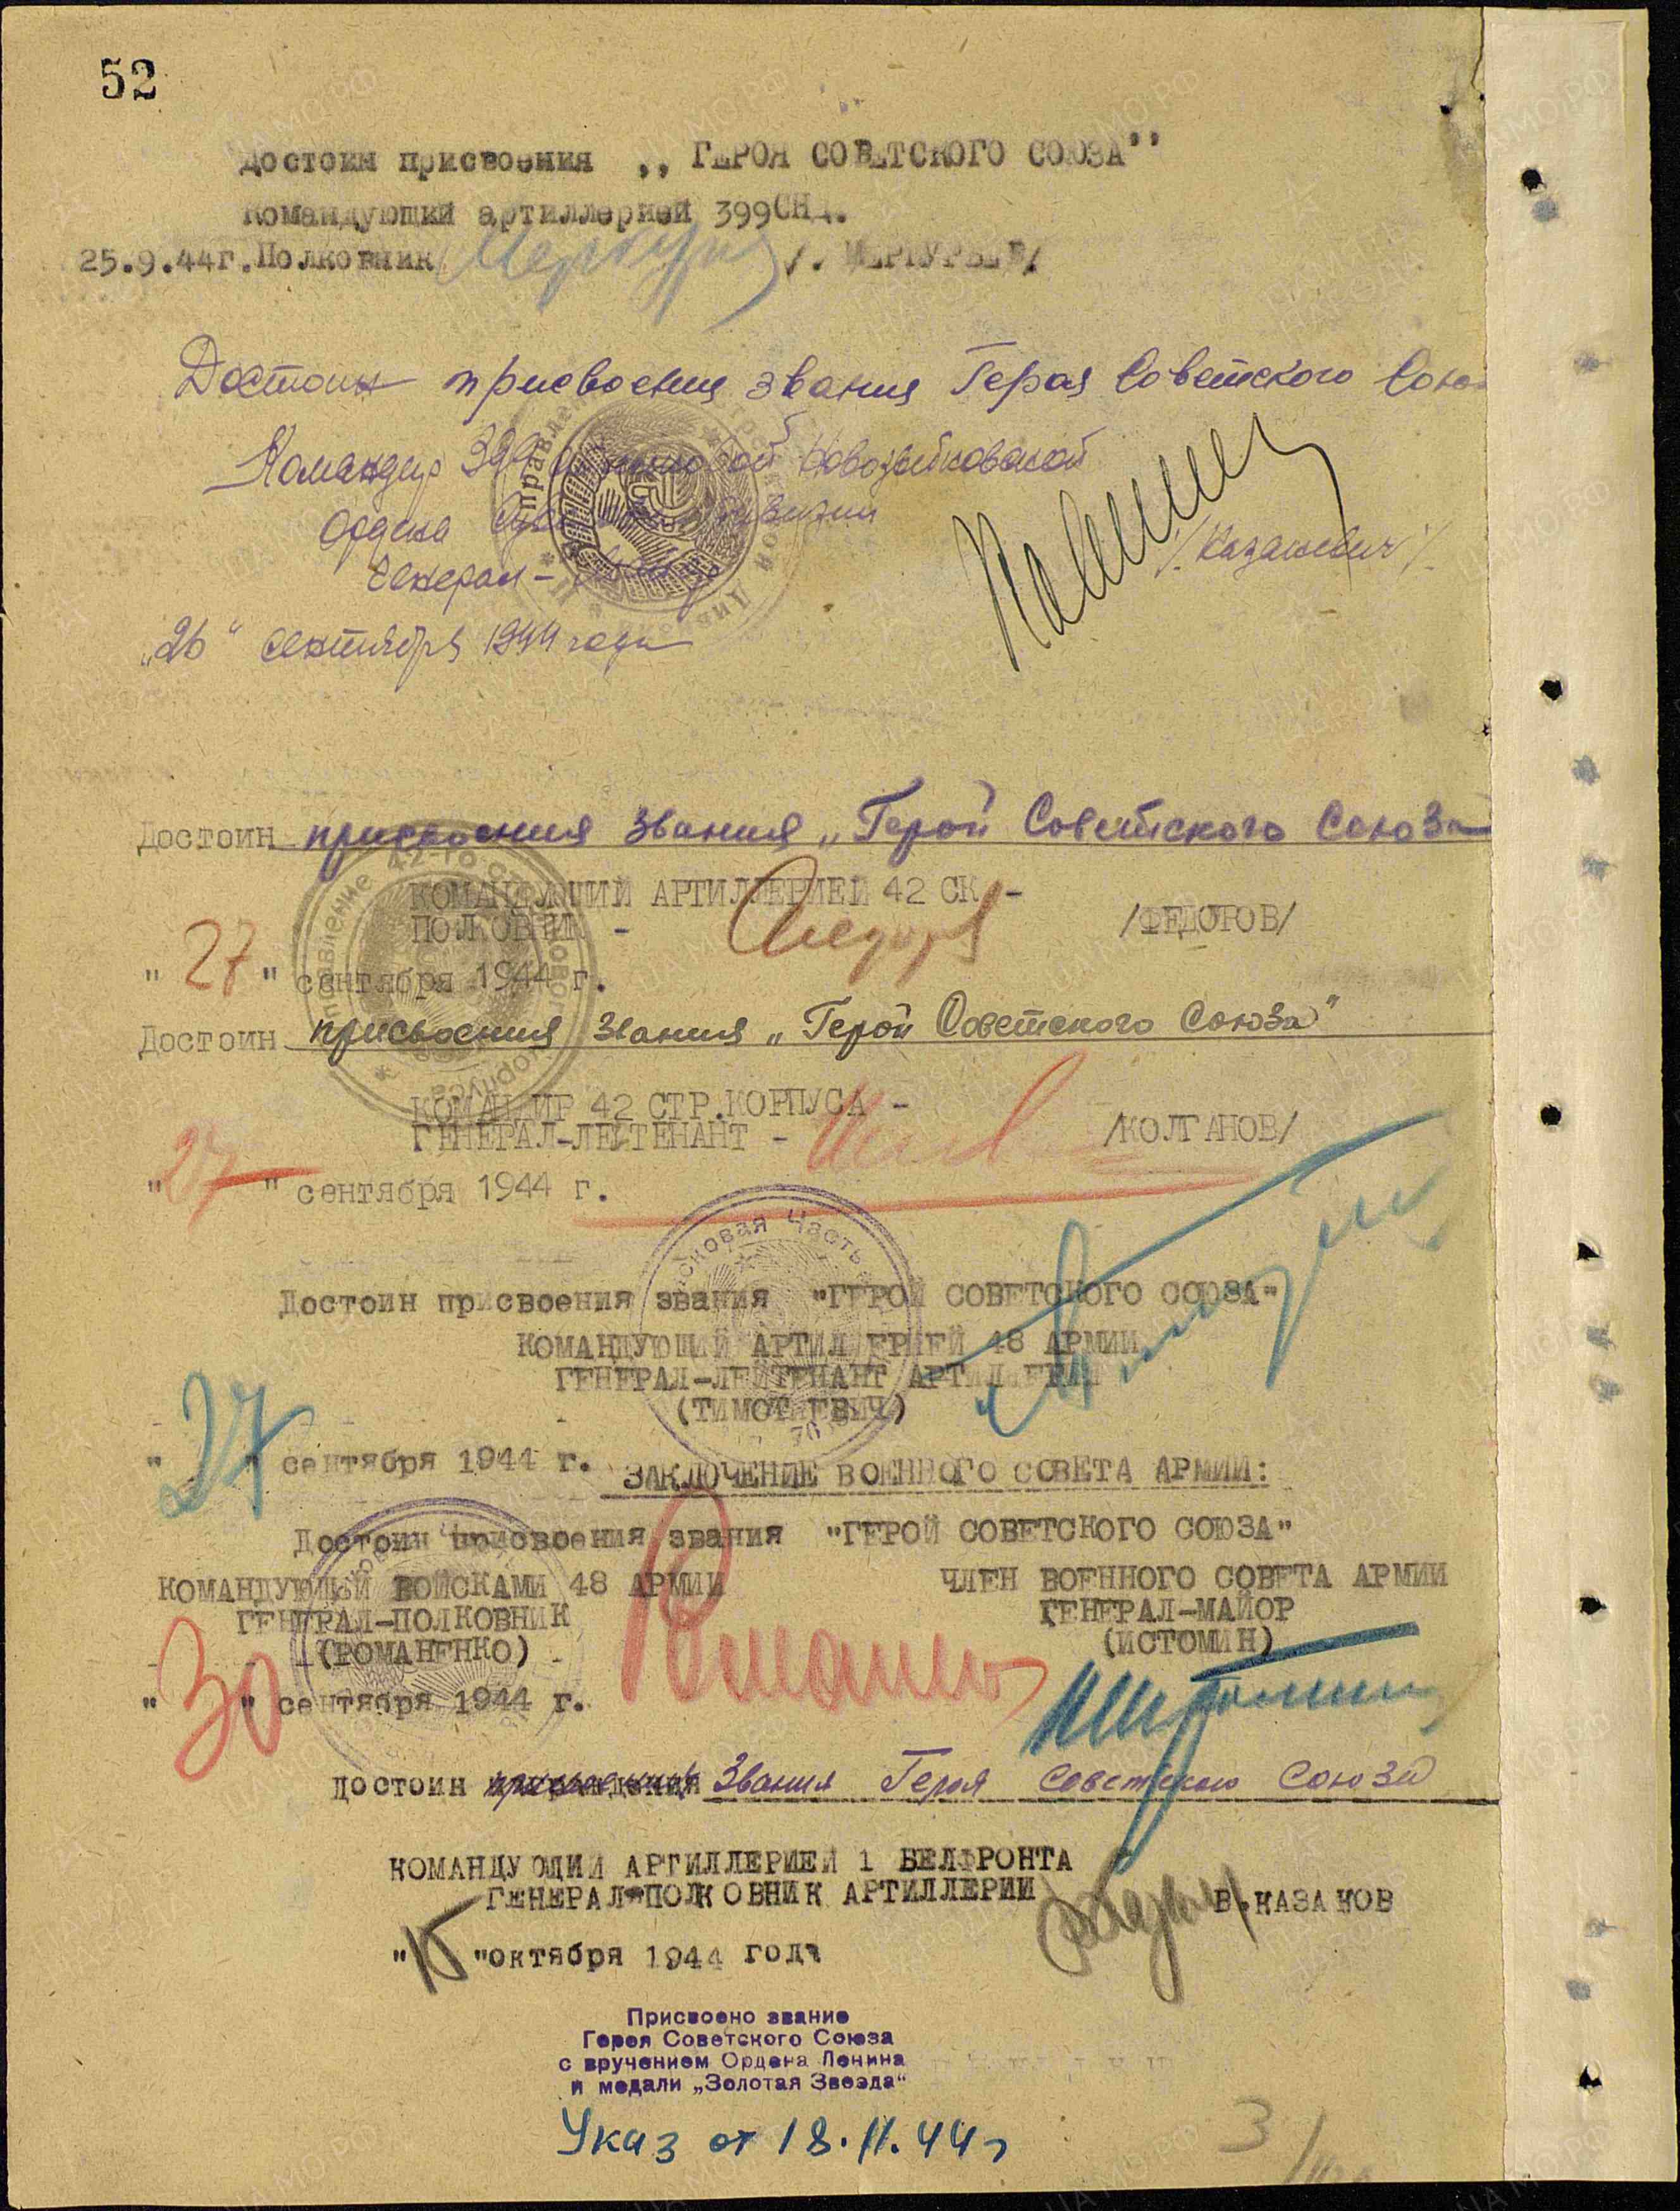 52
Достоин присвоения „ ГЕРОЯ СОВЕТСКОГО СОЮЗА"
Командующий артиллерией 399СНД.
25.9.44г. Полковник /. МЕРКУРЬЕВ/
Достоин присвоения звания Героя Советского Союз
Командир 399 Новозыбковской
Ордена дивизии
Генерал-
/Казакевич/
„26" сентября 1944 года
Достоин присвоения звания „Герой Советского Союза
КОМАНДУЮЩИЙ АРТИЛЛЕРИЕЙ 42 СК -
ПОЛКОВНИК - /ФЕДОТОВ/
"27" сентября 1944 г.
Достоин присвоения звания „Герой Советского Союза"
КОМАНДИР 42 СТР.КОРПУСА -
ГЕНЕРАЛ-ЛЕЙТЕНАНТ - /КОЛГАНОВ/
"27" сентября 1944 г.
Достоин присвоения звания "ГЕРОЙ СОВЕТСКОГО СОЮЗА"
КОМАНДУЮЩИЙ АРТИЛЛЕРИЕЙ 48 АРМИИ
ГЕНЕРАЛ-ЛЕЙТЕНАНТ АРТИЛЛЕРИИ
(ТИМОТИЕВИЧ)
"27" сентября 1944 г.
ЗАКЛЮЧЕНИЕ ВОЕННОГО СОВЕТА АРМИИ:
Достоин присвоения звания "ГЕРОЙ СОВЕТСКОГО СОЮЗА"
КОМАНДУЮЩИЙ ВОЙСКАМИ 48 АРМИИ
ГЕНЕРАЛ-ПОЛКОВНИК
(РОМАНЕНКО)
"30" сентября 1944 г.
ЧЛЕН ВОЕННОГО СОВЕТА АРМИИ
ГЕНЕРАЛ-МАЙОР
(ИСТОМИН)
достоин присвоения звания Героя Советского Союза
КОМАНДУЮЩИЙ АРТИЛЛЕРИЕЙ 1 БЕЛФРОНТА
ГЕНЕРАЛ-ПОЛКОВНИК АРТИЛЛЕРИИ В.КАЗАКОВ
"15" октября 1944 года
Присвоено звание
Героя Советского Союза
с вручением Ордена Ленина
и медали „Золотая Звезда"
Указ от 18.11.44г